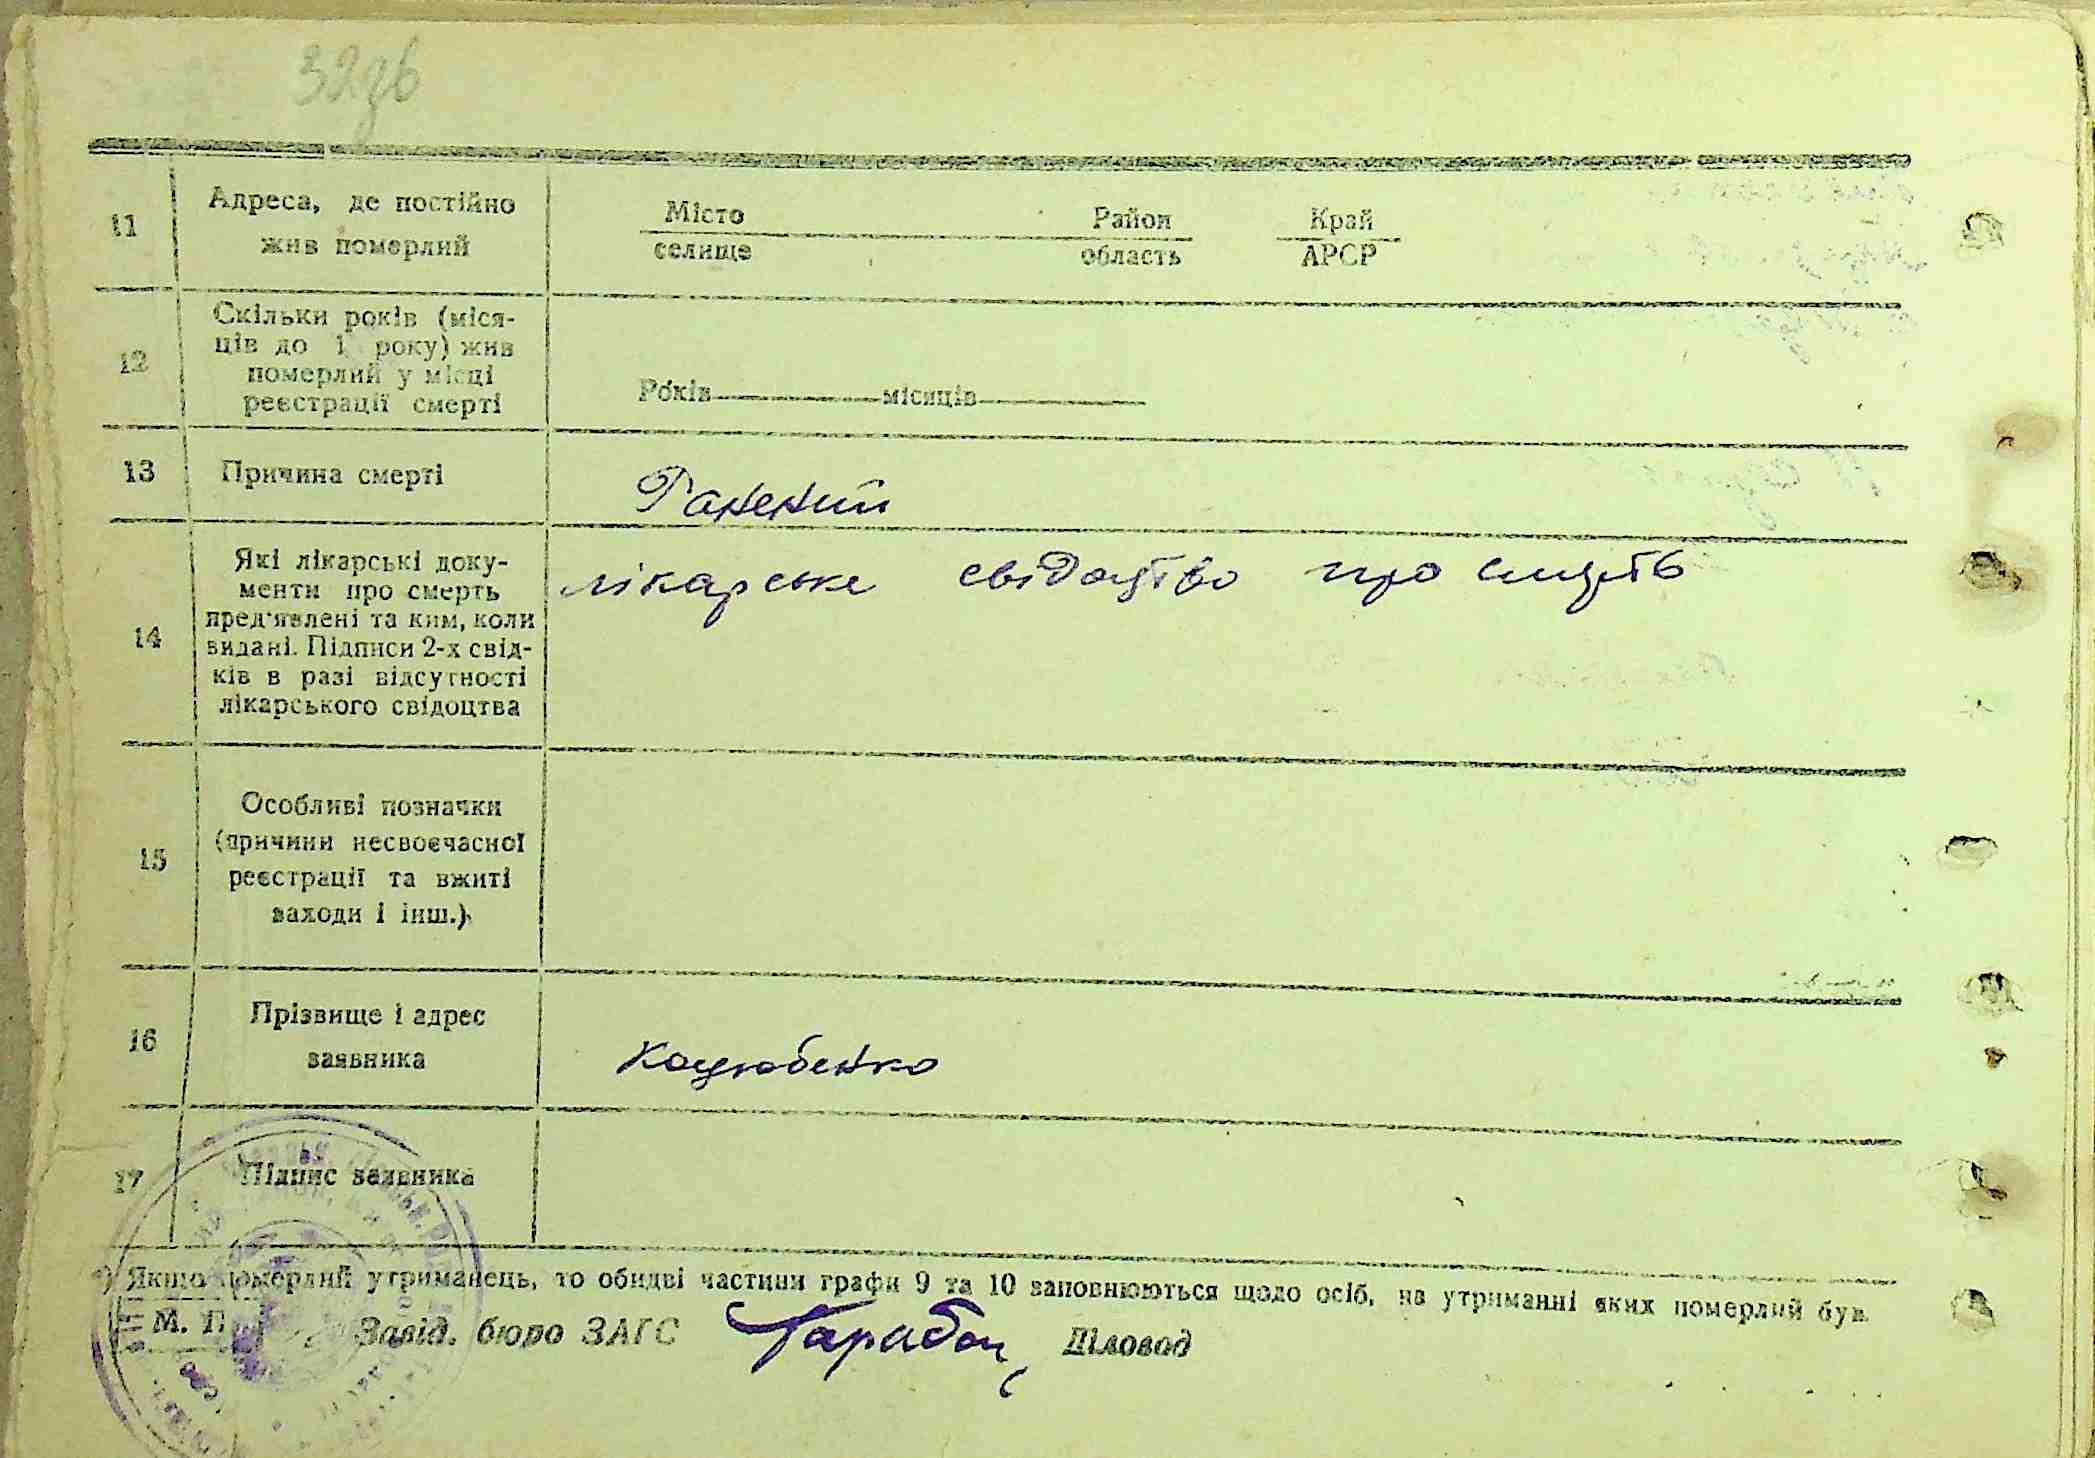 32зв
11
Адреса, де постійно
жив померлий
Місто
селище
Район
область
Край
АРСР
12
Скільки років (міся-
ців до 1 року) жив
померлий у місці
реєстрації смерті
Років місяців
13
Причина смерті
Ранений
14
Які лікарські доку-
менти про смерть
пред'явлені та ким, коли
видані. Підписи 2-х свід-
ків в разі відсутності
лікарського свідоцтва
лікарське свідоцтво про смерть
15
Особливі позначки
(причини несвоєчасної
реєстрації та вжиті
заходи і інш.)
16
Прізвище і адрес
заявника
Коцюбенко
17
Підпис заявника
*) Якщо померлий утриманець, то обидві частини графи 9 та 10 заповнюються щодо осіб, на утриманні яких померлий був.
М. П. Завід. бюро ЗАГС Діловод